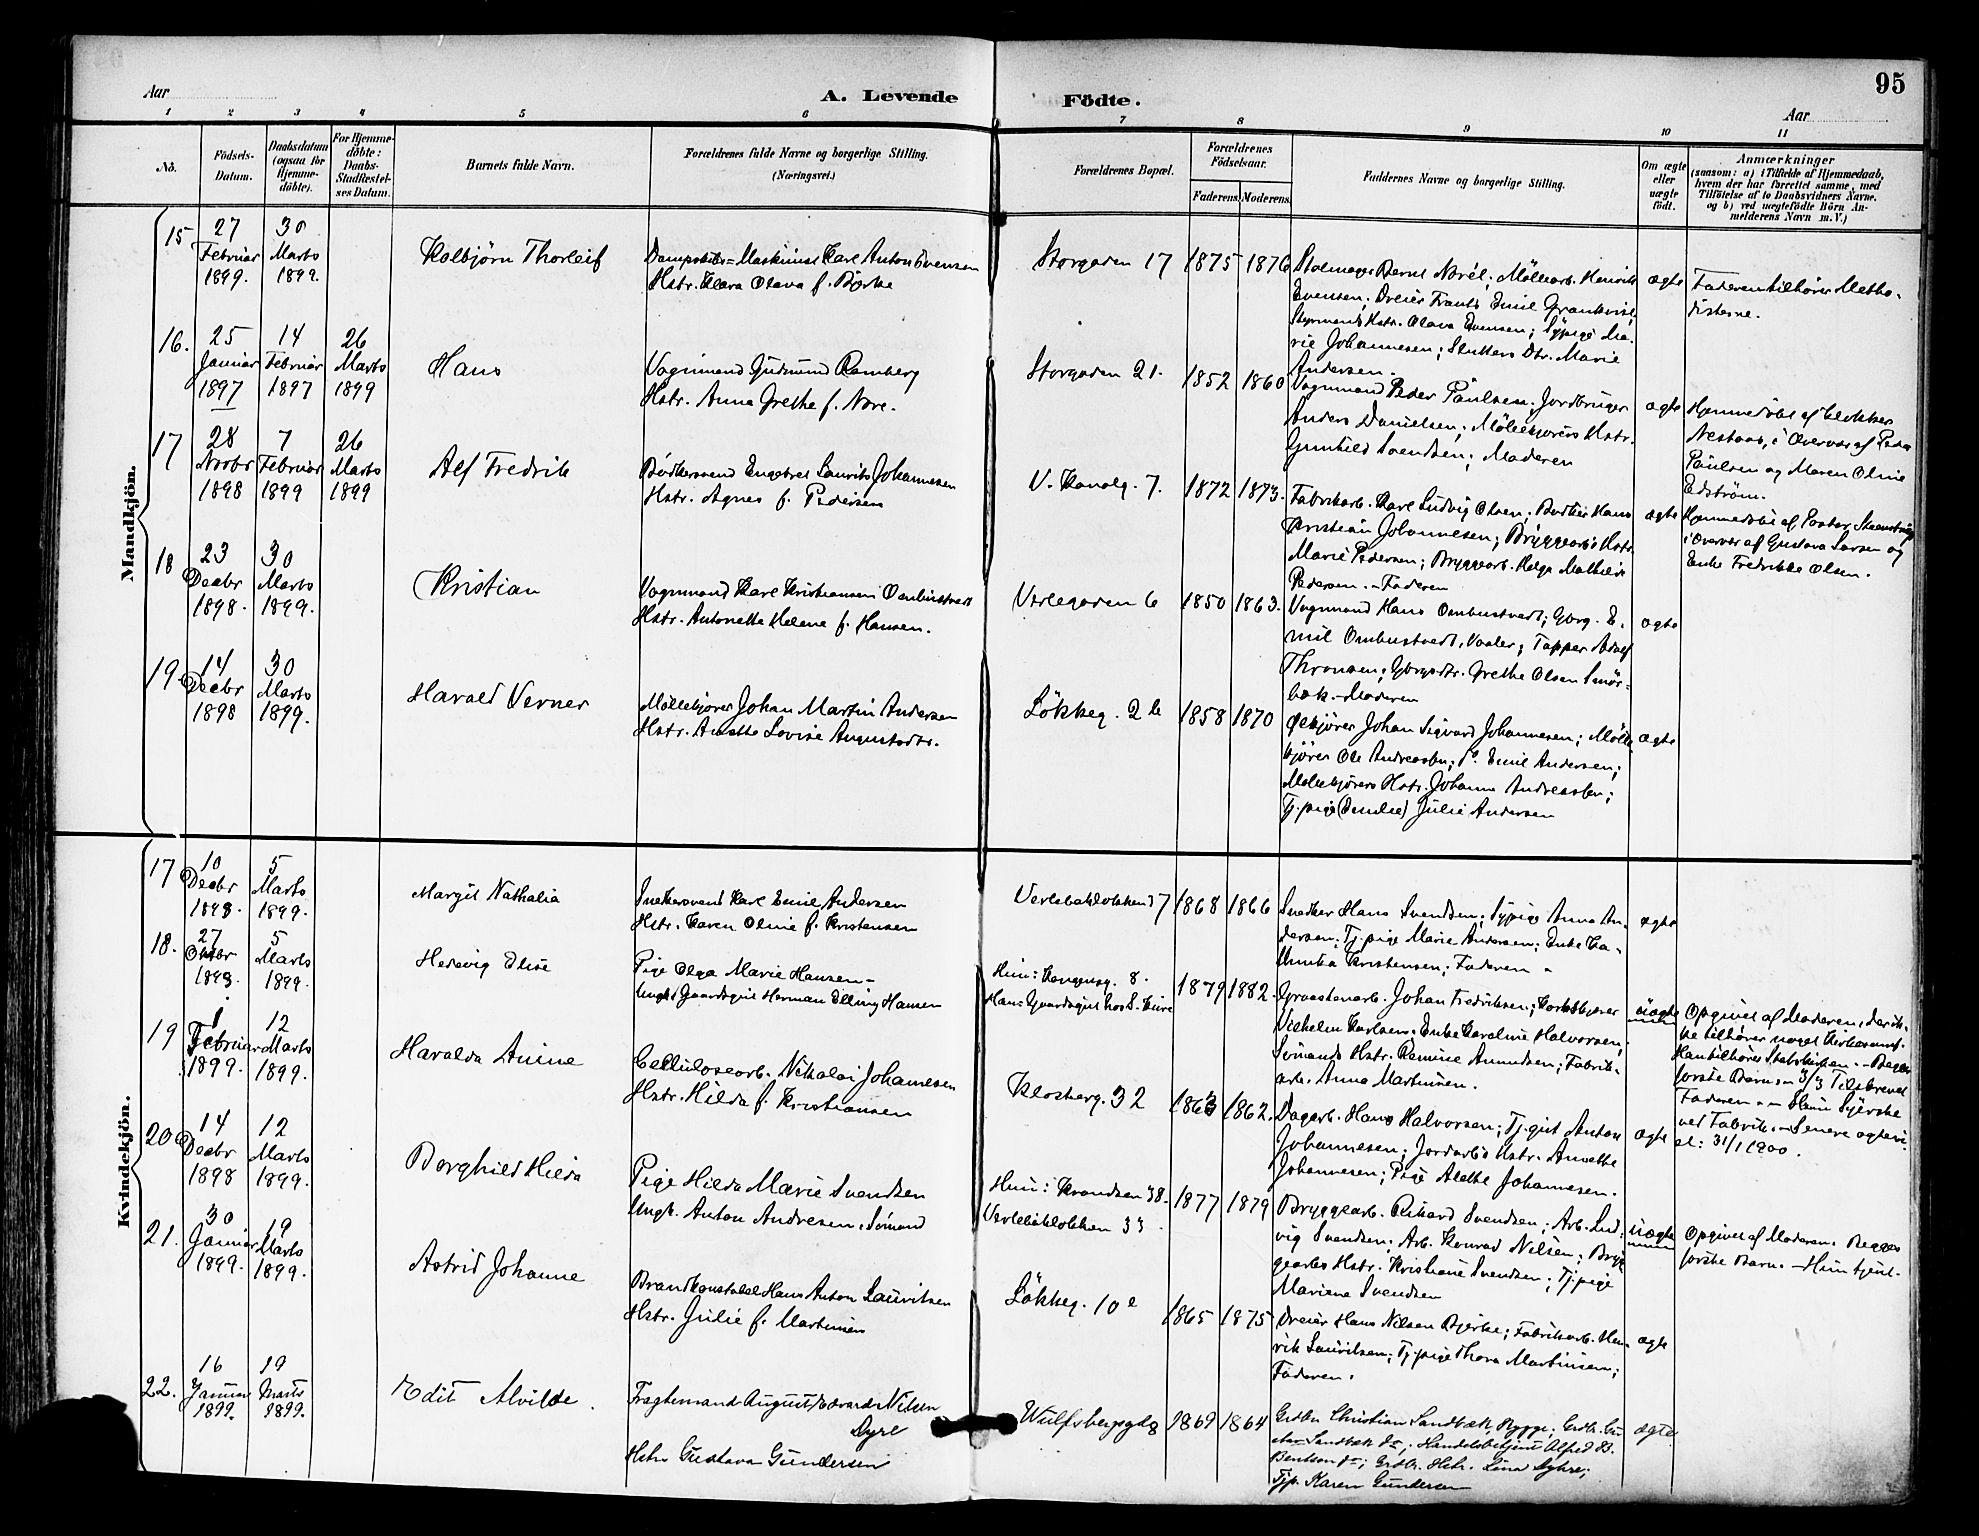 95
Aar
A. Levende
Födte.
Aar
1 2 3 4 5 6 7 8 9 10 11
No.
Födsels-
Datum.
Daabsdatum
(ogsaa for
Hjemme-
döbte).
For Hjemme-
döbte:
Daabs-
Stadfæstel-
ses Datum.
Barnets fulde Navn.
Forældrenes fulde Navne og borgerlige Stilling.
(Næringsvei.)
Forældrenes Bopæl.
Forældrenes
Födselsaar.
Faderens. Moderens.
Faddernes Navne og borgerlige Stilling.
Om ægte
eller
uægte
født.
Anmærkninger
(saasom: a) i Tilfælde af Hjemmedaab,
hvem der har forrettet samme, med
Tilföielse af to Daabsvidners Navne.
og b) ved uægtefödte Börn An-
melderens Navn m. V.)
Mandkjön.
15
27
Februar
1899.
30
Marts
1899.
Kolbjörn Thorleif
Karl Anton Evensen
Hstr. Klara Olava f. Bjerke
Storgaden 17
1875
1876
Bernt Norél; Möllearb. Henrik
Evensen; Dreier Frants Emil Grankvist;
Styrmands Hstr. Olava Evensen; Sypige Ma-
rie Johannesen; Slukters Dtr. Marie
Andersen.
ægte
Faderen tilhører Metho-
disterne.
16.
25
Januar
1897
14
Februar
1897
26
Marts
1899
Hans
Vognmand Gudmund Ramberg
Hstr. Anna Grethe f. Nore.
Storgaden 21.
1852
1860
Vognmand Peder Paulsen. Jordbruger
Anders Danielsen; Møllekjørers Hstr.
Gunhild Svendsen; Moderen
ægte
Hjemmedøbt af Klokker
Nestaas, i Overvær af Peder
Paulsen og Maren Oline
Edström.
17
28
Novbr
1898
7
Februar
1899
26
Marts
1899
Alf Fredrik
Bødkersvend Engebret Laurits Johannesen
Hstr. Agnes f. Pedersen
V. Kanalg. 7.
1872
1873.
Fabrikarb. Karl Ludvig Olsen; Bødker Hans
Kristian Johannesen; Bryggearb's Hstr.
Marie Pedersen; Bryggearb. Helga Mathilde
Pedersen. - Faderen
ægte
Hjemmedøbt af Pastor Steenstrup
i Overvær af Gustava Larsen og
Enke Fredrikke Olsen.
18
23
Decbr
1898.
30
Marts
1899.
Kristian
Vognmand Karl Kristiansen Ombustvedt
Hstr. Antonette Helene f. Hansen.
Verlegaden 6
1850
1863.
Vognmand Hans Ombustvedt; Gbrg. E-
mil Ombustvedt, Vaaler; Tapper Adolf
Thronsen; Gbrgsdtr. Grethe Olsen Smör-
bæk. - Moderen
ægte
19.
14
Decbr
1898
30
Marts
1899.
Harald Verner
Møllekjører Johan Martin Andersen
Hstr. Anette Lovise Augustadtr.
Løkkeg. 2 b
1858
1870
Ølkjører Johan Sigvard Johannesen; Mölle-
kjörer Ole Andreassen; do. Emil Andersen;
Møllekjørers Hstr. Johanne Andreassen;
Tj.pige (Emilie) Julie Andersen
ægte
Kvindekjön.
17
10
Decbr
1898.
5
Marts
1899.
Margit Nathalia
Snekkersvend Karl Emil Andersen
Hstr. Karen Oline f. Kristensen
7
1868
1866
Snedker Hans Svendsen; Sypige Anna An-
dersen; Tj.pige Marie Andersen; Enke Ka-
Kristensen; Faderen -
ægte
18.
27
Oktbr
1898.
5
Marts
1899.
Hedevig Elise
Pige Olga Marie Hansen -
Ungk. Gaardsgut Herman Elling Hansen
Hun: Kongensg. 8.
Han: Gaardsgut hos S. Kure
1879
1882.
Graastenarb. Johan Fredriksen;
Vilhelm Karlsen. Enke Karoline Halvorsen;
Sømands Hstr. Ramine Amundsen; Fabrik-
arb. Anna Martinsen.
uægte
Opgivet af Moderen, der ik-
ke tilhører noget Kirkesamf.
Han tilhører Statskirken. - Begges
første Barn. - 3/3 Tilskrevet
Faderen. - Hun Syerske
ved Fabrik. - Senere ægtevi-
et: 31/1 1900.
19
1
Februar
1899.
12
Marts
1899.
Haralda Anine
Cellulosearb. Nikolai Johannesen
Hstr. Hilda f. Kristiansen
Klosterg. 32
1863
1862.
Dagarb. Hans Halvorsen; Tj.gut Anton
Johannesen; Jordarb's Hstr. Annette
Johannesen; Pige Alette Johannesen.
ægte
20
14
Decbr
1898
12
Marts
1899.
Borghild Hilda
Pige Hilda Marie Svendsen
Ungk. Anton Andresen, Sømand
Hun: 38.
33
1877
1879
Bryggearb. Rikard Svendsen; Arb. Lud-
vig Svendsen; Arb. Konrad Nilsen; Bryg-
gearbs Hstr. Kristiane Svendsen; Tj.pige
Mariana Svendsen
uægte
Opgivet af Moderen. Begges
første Barn. - Hun tjent-
21.
30
Januar
1899.
19
Marts
1899.
Astrid Johanne
Brandkonstabel Hans Anton Lauritsen
Hstr. Julie f. Martinsen
Løkkeg. 10 e
1865
1875
Dreier Hans Nilsen Bjerke; Fabrikarb. Hen-
rik Lauritsen; Tj.pige Thora Martinsen;
Faderen.
ægte
22.
16
Januar
1899.
19
Marts
1899.
Edit Alvilde.
Fragtemand August Edvard Nilsen
Dyre
Hstr Gustava Gundersen
Wulfsbergsgd 8
1869
1864
Grdbr. Christian Sandbæk, Rygge; Grdbr. Gu-
stav Sandbæk do; Handelsbetjent Alfred B.
Bentsen do; Grdbr. Hstr. Lina Dyhre;
Tjp. Karen Gundersen
ægte.